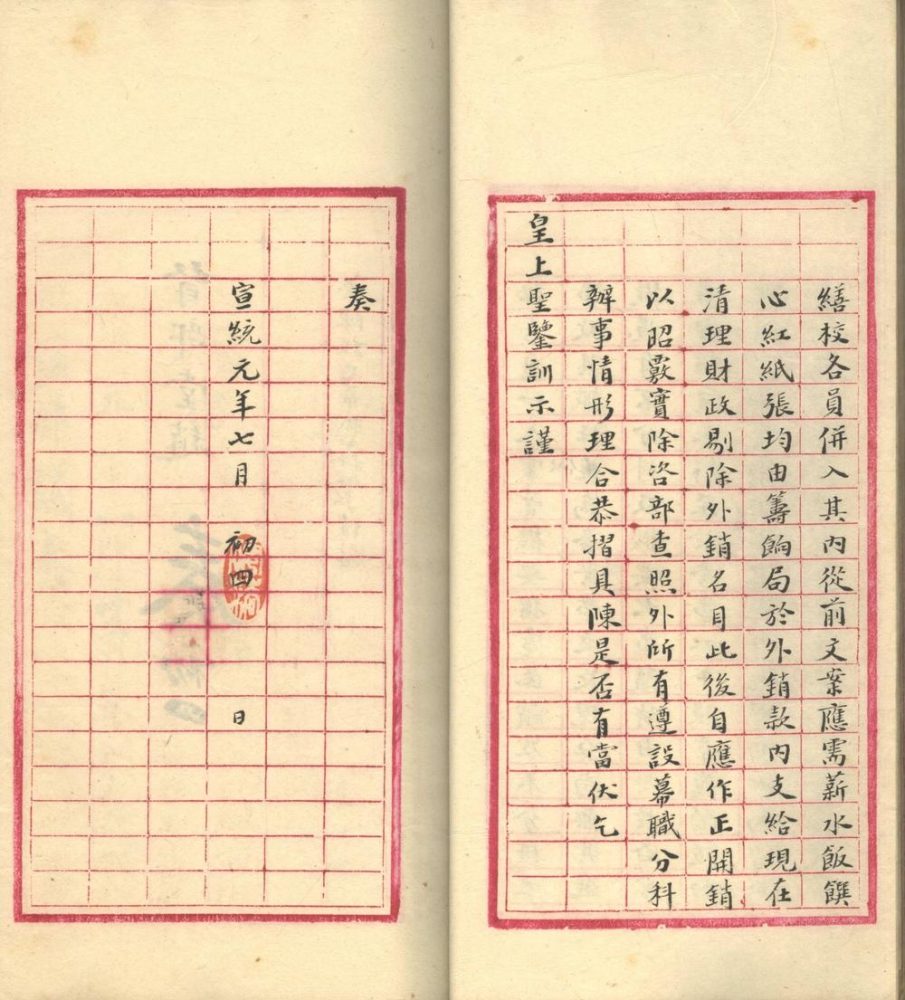 繕校各員併入其內從前文案應需薪水飯饌
心紅紙張均由籌餉局於外銷款內支給現在
清理財政剔除外銷名目此後自應作正開銷
以昭覈實除咨部查照外所有遵設幕職分科
辦事情形理合恭摺具陳是否有當伏乞
皇上聖鑒訓示謹
奏
宣統元年七月 初四 日